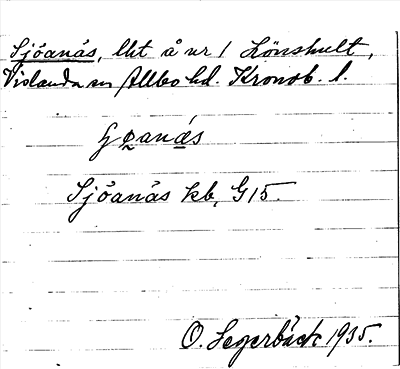 Sjöanäs, lht å nr 1 Lönshult,
Vislanda sn Allbo hd. Kronob. l.
Sjöanäs kb, G 15.
O. Segerbäck 1935.